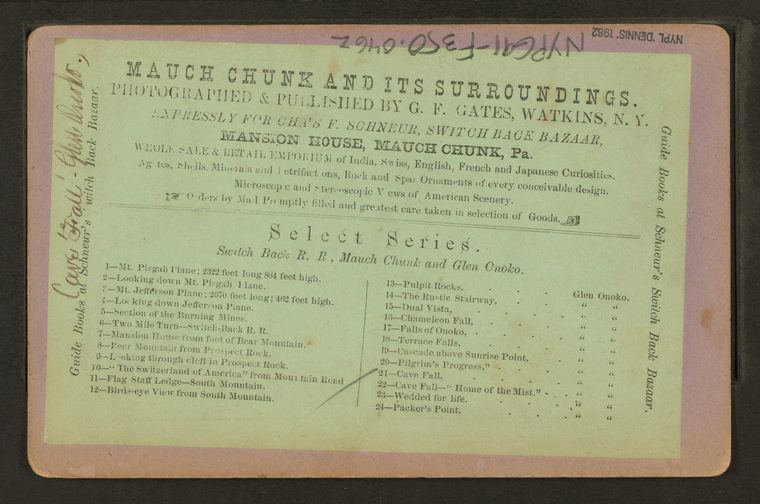 NYPG91-F350.0462
NYPL 'DENNIS' 1982
MAUCH CHUNK AND ITS SURROUNDINGS.
PHOTOGRAPHED & PULLISHED BY G. F. GATES, WATKINS, N. Y.
EXPRESSLY FOR CHA'S F. SCHNEUR, SWITCH BACK BAZAAR,
MANSION HOUSE, MAUCH CHUNK, Pa.
WHOLE SALE & RETAIL EMPORIUM of India, Swiss, English, French and Japanese Curiosities.
Agates, Shells, Minerals and Petrifactions, Rock and Spar Ornaments of every conceivable design.
Microscopic and Stereoscopic Views of American Scenery.
Orders by Mail Promptly filled and greatest care taken in selection of Goods.
Select Series.
Switch Back R. R, Mauch Chunk and Glen Onoko.
1—Mt. Pisgah Plane; 2322 feet long 864 feet high.
2—Looking down Mt. Pisgah Plane.
3—Mt. Jefferson Plane; 2070 feet long; 462 feet high.
4—Looking down Jefferson Plane.
5—Section of the Burning Mines.
6—Two Mile Turn—Switch-Back R. R.
7—Mansion House from foot of Bear Mountain.
8—Bear Mountain from Prospect Rock.
9—Looking through cleft in Prospect Rock.
10—"The Switzerland of America" from Mountain Road
11—Flag Staff Ledge—South Mountain.
12—Birds-eye View from South Mountain.
13—Pulpit Rocks, - - - Glen Onoko.
14—The Rustic Stairway, - - - " "
15—Dual Vista, - - - " "
16—Chameleon Fall, - - - " "
17—Falls of Onoko, - - - " "
18—Terrace Falls, - - - " "
19—Cascade above Sunrise Point, - - " "
20—Pilgrim's Progress," - - - " "
21—Cave Fall, - - - " "
22—Cave Fall—"Home of the Mist," - - " "
23—Wedded for life. - - - " "
24—Packer's Point, - - - " "
Guide Books at Schneur's Switch Back Bazaar.
Cave Fall - Glen Onoko.
Guide Books at Schneur's witch Back Bazaar.